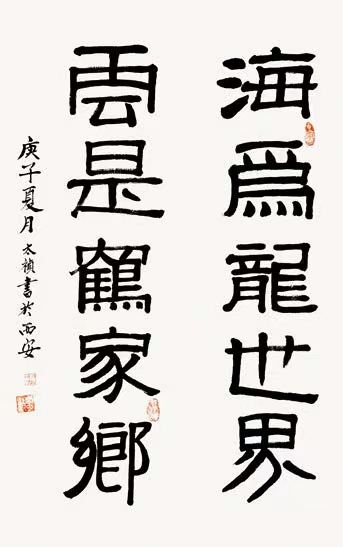 海為龍世界
雲是鶴家鄉
庚子夏月太頑書於西安